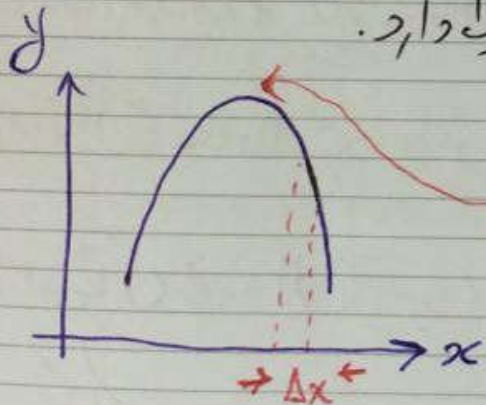 y
x
Δx